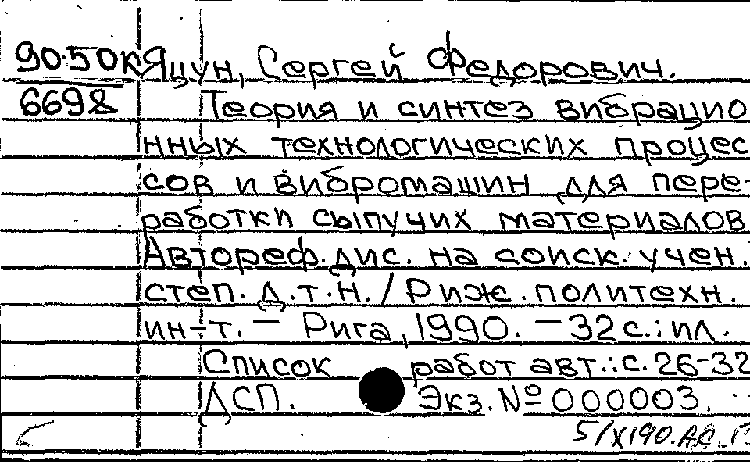 90-50к Яцун, Сергей Федорович.
6698 Теория и синтез вибрацио
нных технологических процес
сов и вибромашин для пере-
работки сыпучих материалов
Автореф. дис. на соиск. учен.
степ. д.т.н. / Риж. политехн.
ин-т. — Рига, 1990. — 32 с.: ил.
Список работ авт.: с. 26-32
ДСП. Экз. № 000003.
5/XI90.